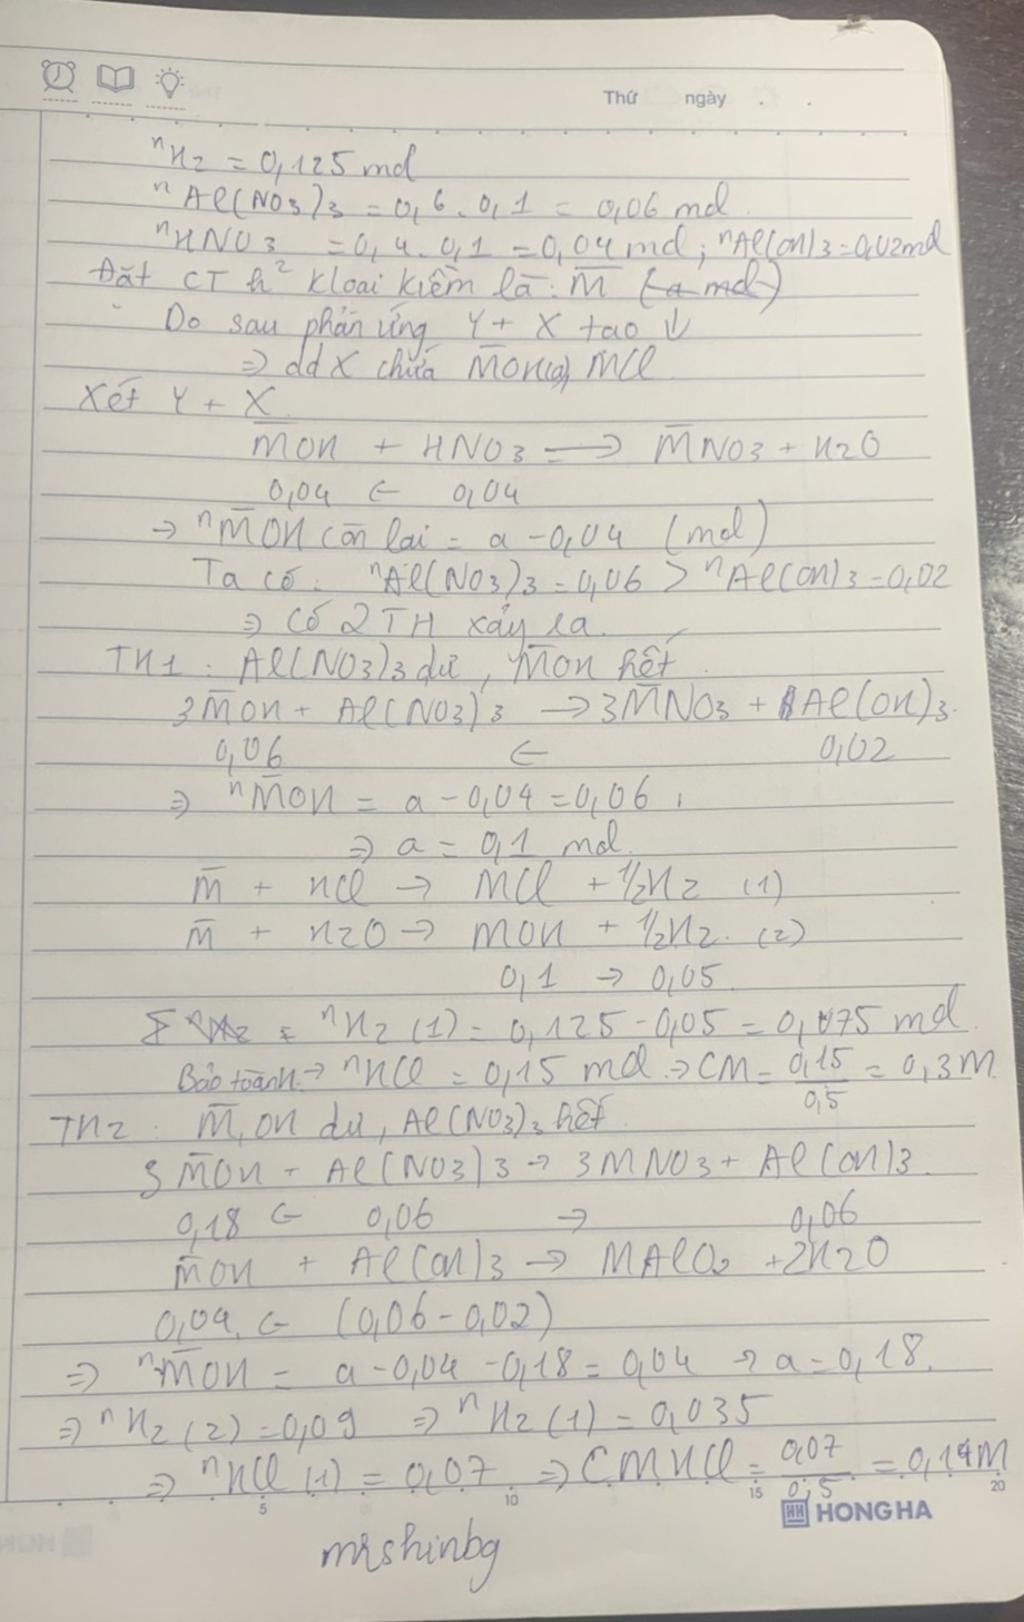 Thứ ngày . .
nH2 = 0,125 mol
nAl(NO3)3 = 0,6 . 0,1 = 0,06 mol.
nHNO3 = 0,4 . 0,1 = 0,04 mol ; nAl(OH)3 = 0,02 mol
Đặt CT h² kloại kiềm là : M̅ (a mol)
Do sau phản ứng Y + X tạo ↓
⇒ dd X chứa M̅OH(a) MCl
Xét Y + X
M̅OH + HNO3 ⟹ M̅NO3 + H2O
0,04 ← 0,04
→ nM̅OH còn lại = a - 0,04 (mol)
Ta có : nAl(NO3)3 = 0,06 > nAl(OH)3 = 0,02
⇒ Có 2TH xảy ra.
TH1 : Al(NO3)3 dư, M̅OH hết.
3M̅OH + Al(NO3)3 → 3M̅NO3 + Al(OH)3.
0,06 ← 0,02
⇒ nM̅OH = a - 0,04 = 0,06
⇒ a = 0,1 mol.
M̅ + HCl → MCl + ½H2 (1)
M̅ + H2O → MOH + ½H2. (2)
0,1 → 0,05
nH2 (1) = 0,125 - 0,05 = 0,075 mol
Bảo toàn H → nHCl = 0,15 mol → CM = 0,15/0,5 = 0,3M
TH2 : M̅OH dư, Al(NO3)3 hết.
3M̅OH + Al(NO3)3 → 3MNO3 + Al(OH)3.
0,18 ← 0,06 → 0,06
M̅OH + Al(OH)3 → MAlO2 + 2H2O
0,04 ← (0,06 - 0,02)
⇒ nM̅OH = a - 0,04 - 0,18 = 0,04 → a = 0,18.
⇒ nH2 (2) = 0,09 ⇒ nH2 (1) = 0,035
⇒ nHCl (1) = 0,07 ⇒ CMHCl = 0,07/0,5 = 0,14M
5 10 15 20
HONG HA
mrshinbg